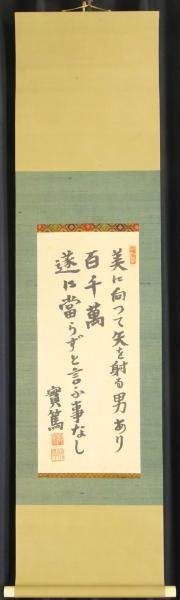 美に向つて矢を射る男あり
百千萬
遂に當らずと言ふ事なし
實篤